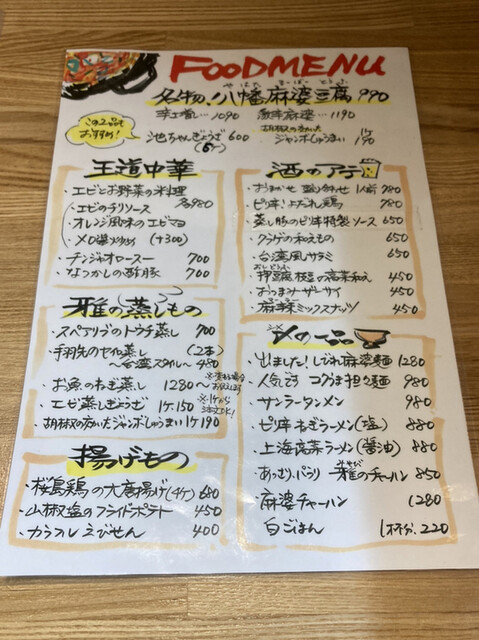 FOOD MENU
やはた まーぼー とうふ
名物!八幡麻婆豆腐 990
辛さ増し…1090 激辛麻婆…1190
この2品がおすすめ!
池ちゃんぎょうざ 600
(5ケ)
胡椒の効いた
ジャンボしゅうまい 1ケ 190
王道中華
・エビとお野菜の料理
各980
・エビのチリソース
・オレンジ風味のエビマヨ
・XO醤炒め (+300)
・チンジャオロースー 700
・なつかしの酢豚 700
雅の蒸しもの
・スペアリブのトウチ蒸し 700
・手羽先のセイロ蒸し (2本)
〜台湾スタイル〜 480
・お魚のねぎ蒸し 1280〜
・エビ蒸しぎょうざ 1ケ 150
※1ケから注文OK!
・胡椒の効いたジャンボしゅうまい 1ケ 190
揚げもの
・桜島鶏の大唐揚げ(4ケ) 680
・山椒塩のフライドポテト 450
・カラフルえびせん 400
酒のアテ
・おまかせ盛り合わせ 1人前 980
・ピリ辛!よだれ鶏 780
・蒸し豚のピリ辛特製ソース 650
・クラゲの和えもの 650
・台湾風サラミ 650
おしどうふ
・押豆腐と枝豆の高菜和え 450
・おつまみザーサイ 450
・麻辣ミックスナッツ 450
〆の一品
・出ました!しびれ麻婆麺 1280
・人気です コクうま担々麺 980
・サンラータンメン 980
・ピリ辛ねぎラーメン(塩) 880
・上海高菜ラーメン(醤油) 880
みやび
・あっさりパラリ 雅のチャーハン 850
・麻婆チャーハン 1280
・白ごはん 1杯分 220